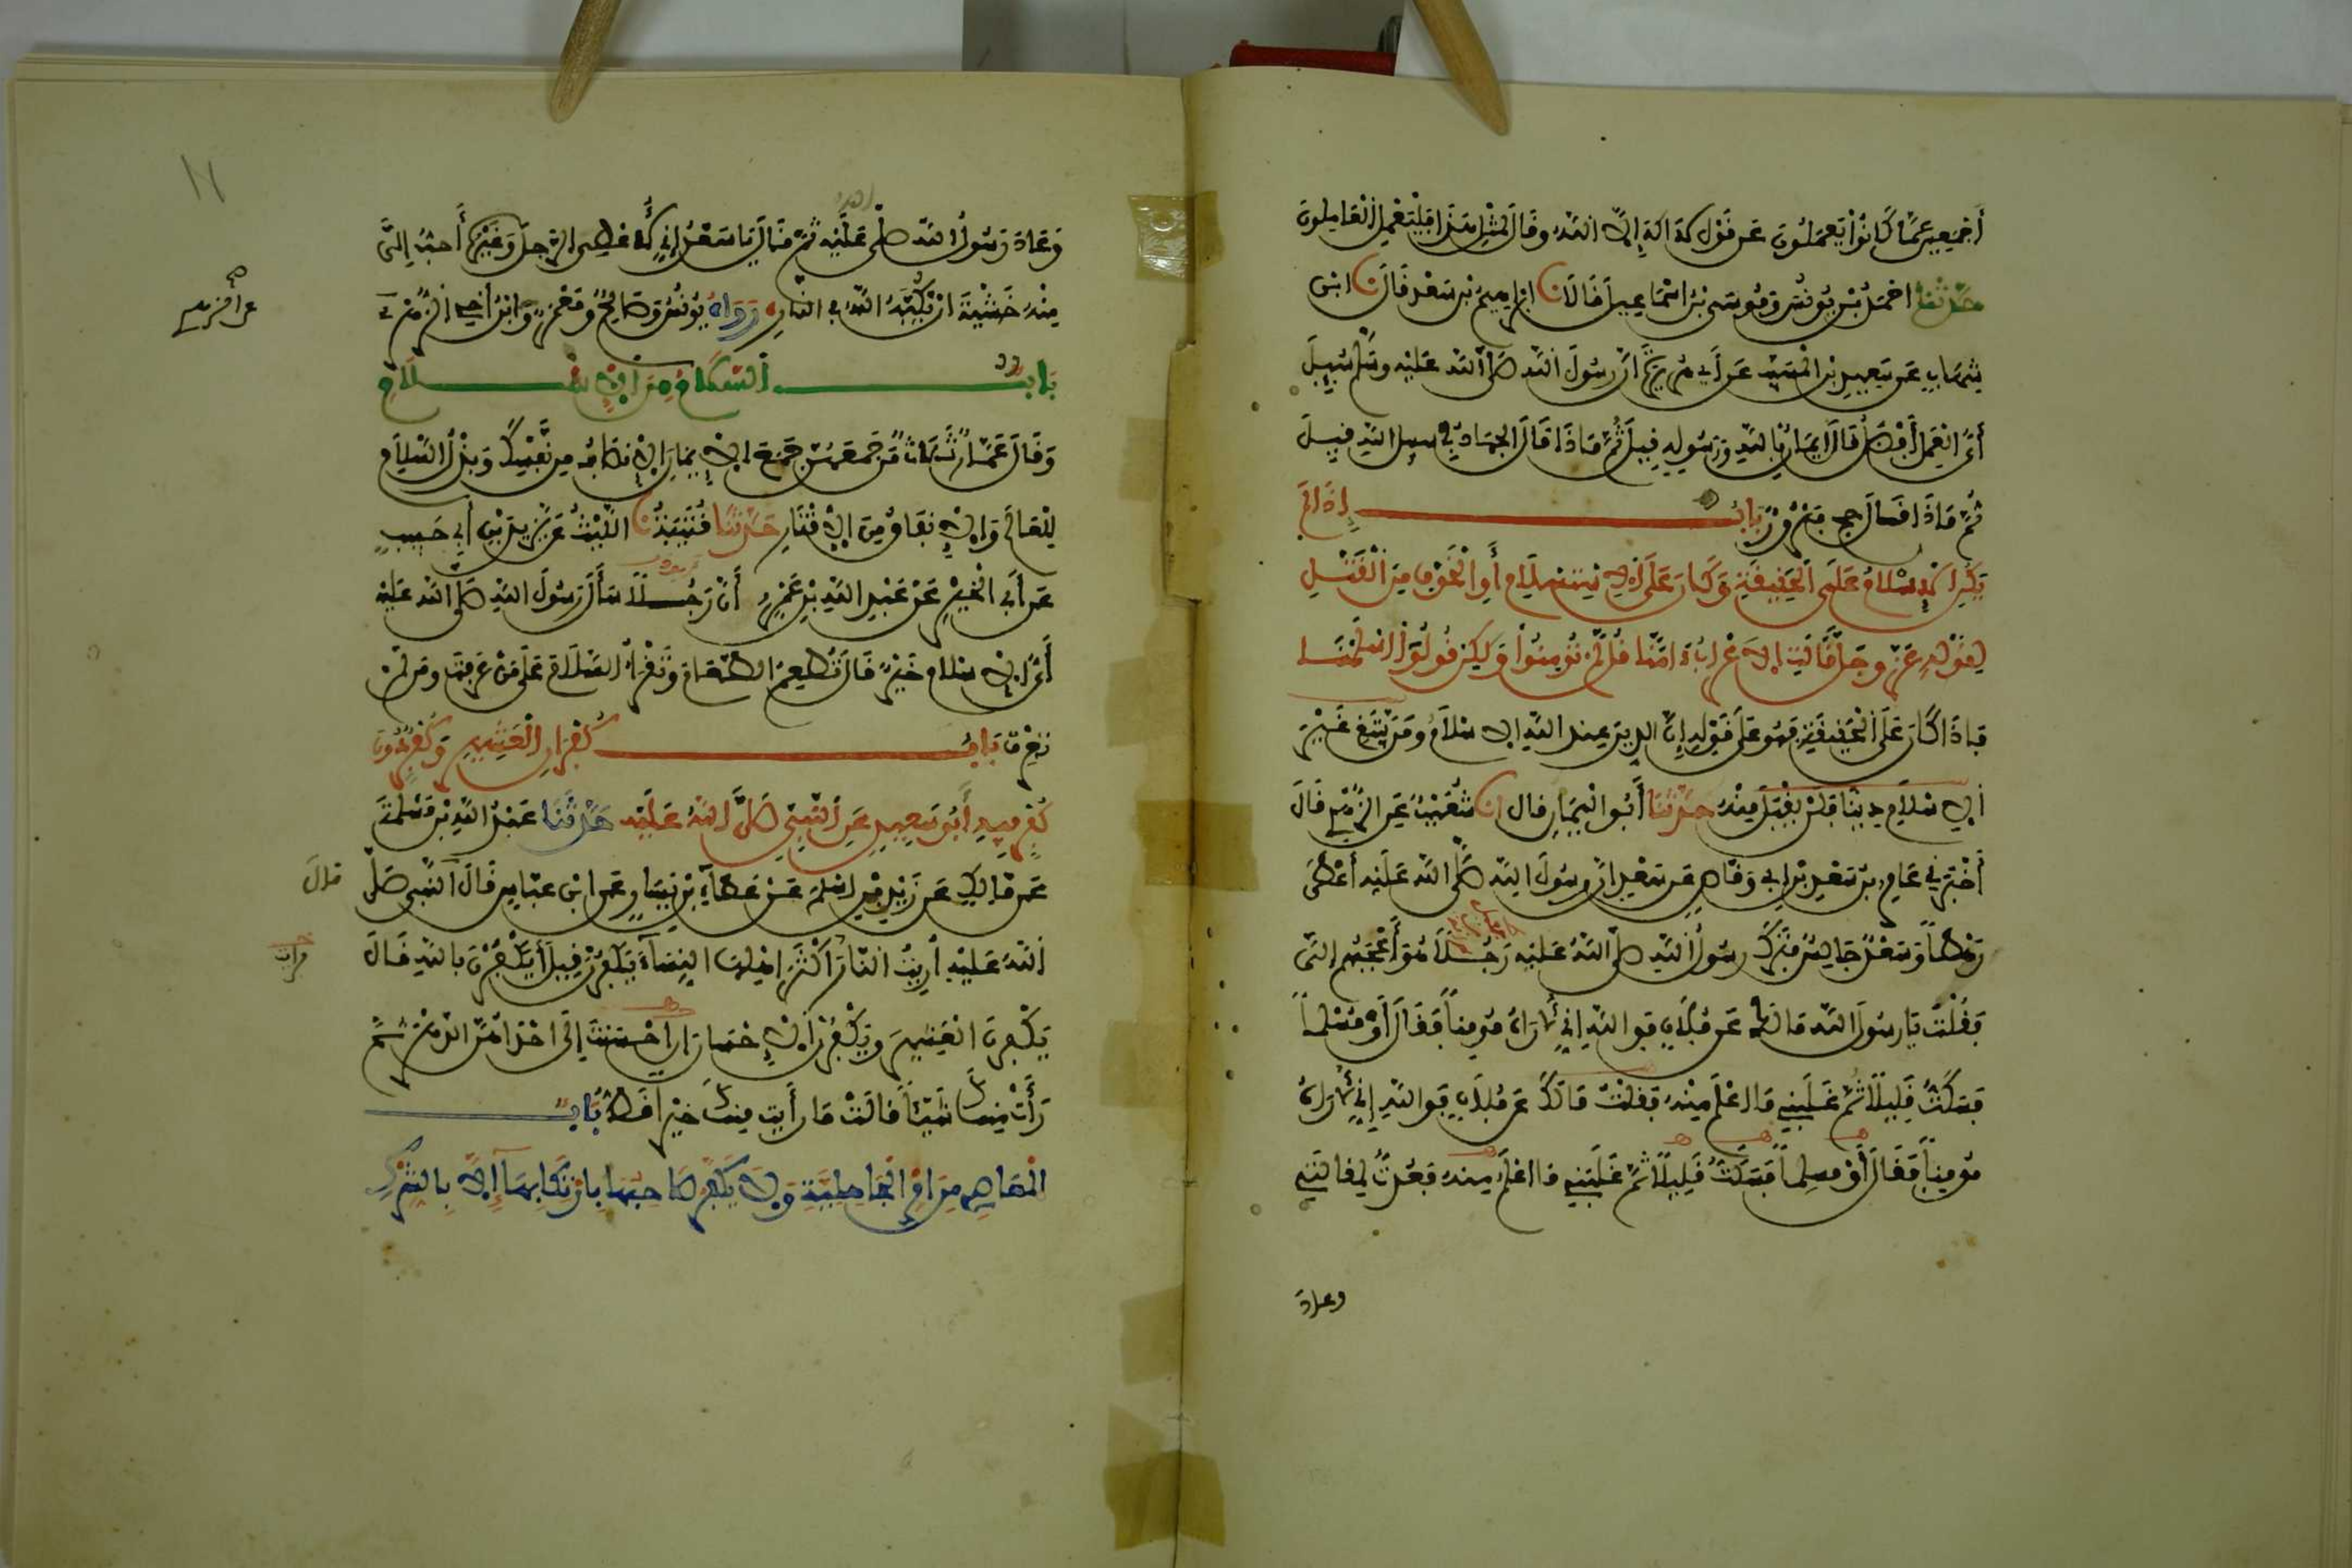 أَجْمَعِينَ عَمَّا كَانُوا يَعْمَلُونَ عَن قَوْلِ لاَ إله إِلاَّ اللهُ وقَالَ لِمِثْلِ هَذَا فَلْيَعْمَلِ الْعَامِلُونَ
حَدَّثَنَا احْمَدُ بْنُ يُونُسَ وَمُوسَى بْنُ اسْمَاعِيلَ قَالاَ نا ابْرَاهِيمُ بْنُ سَعْدٍ قَالَ نا ابْنُ
شِهَابٍ عَن سَعِيدِ بْنِ الْمُسَيَّبِ عَن أَبِي هُرَيْرَةَ أَنَّ رَسُولَ اللهِ صَلَّى اللهُ عَلَيْهِ وسَلَّمَ سُئِلَ
أَيُّ الْعَمَلِ أَفْضَلُ قَالَ ايمَانٌ بِاللهِ وَرَسُولِهِ قِيلَ ثُمَّ مَاذَا قَالَ الْجِهَادُ فِي سبيل اللهِ قِيلَ
ثُمَّ مَاذَا قَالَ حج مَبْرُورٌ بَابُ إِذَا لَمْ
يَكُنِ الإِسْلاَمُ عَلَى الْحَقِيقَةِ وَكَانَ عَلَى الاِسْتِسْلاَمِ أَوِ الْخَوْفِ مِنَ الْقَتْلِ
لِقَوْلِهِ عَزَّ وَجَلَّ قَالَتِ الاَعْرَابُ ءامَنَّا قُل لَّمْ تُومِنُوا وَلَكِن قُولُوا أَسْلَمْنَا
فَإذَا كَانَ عَلَى الْحَقِيقَةِ فَهُوَ عَلَى قَوْلِهِ إِنَّ الدِينَ عِندَ اللهِ الاِسْلاَمُ وَمَنْ يَبْتَغِ غَيْرَ
الاِسْلاَمِ دِيناً فَلَنْ يُقْبَلَ مِنْهُ حَدَّثَنَا أَبُو الْيَمَانِ قال انا شُعَيْبٌ عَنِ الزُّهْرِيِّ قَالَ
أَخْبَرَنِي عَامِرُ بْنُ سَعْدِ بْنِ أبِي وَقَّاصٍ عَن سَعْدٍ انَّ رسُولَ اللهِ صَلَّى اللهُ عَلَيْهِ أَعْطَى
رَهْطاً وَسَعْدٌ جَالِسٌ فَتَرَكَ رسُولُ اللهِ صلى اللهُ عَلَيْهِ رَجُلاً هُوَ أَعْجَبُهُم إلَيَّ
فَقُلْتُ يَا رسُولَ اللهِ مَا لَكَ عَن فُلاَنٍ فَوَاللهِ إنِّي لأَرَاهُ مُومِناً فَقَالَ أَوْ مُسْلِماً
فَسَكَتُّ قَلِيلاً ثُمَّ غَلَبَنِي مَا اعْلَمُ مِنْهُ فَقُلْتُ مَا لَكَ عَن فُلاَنٍ فَوَاللهِ إِنِّي لأَرَاهُ
مُومِناً فَقَالَ أَوْ مسلِماً فَسَكَتُّ قَلِيلاً ثُمَّ غَلَبَنِي مَا اعْلَمُ مِنهُ فَعُدتُّ لِمَقالَتِي
وعاد
وَعَادَ رَسُولُ اللهِ صلى عَلَيْهِ ثُمَّ قَالَ يَا سَعْدُ إنِّي لأُعْطِي الرَّجُلَ وَغَيْرُهُ أَحَبُّ إلَيَّ
مِنْهُ خَشْيَةَ انْ يَكُبَّهُ اللهُ فِي النَّارِ وَرَوَاهُ يُونُسُ وَصَالِحٌ وَمَعْمَرٌ وَابْنُ أَخِي الزُّهْرِيِّ
عن الزهري
بَابُ السَّلاَمُ مِنَ الإِسْلاَمِ
وَقَالَ عَمَّارٌ ثَلاَثٌ مَن جَمَعَهُنَّ جَمَعَ الاِيمَانَ الاِنصَافُ مِن نَّفْسِكَ وَبَذْلُ السَّلاَمِ
لِلْعَالَمِ وَالاِنفَاقُ مِنَ الاِقْتَارِ حَدَّثَنَا قُتَيْبَةُ نا اللَّيْثُ عَن يَزِيدَ بْنِ أَبِي حَبِيبٍ
عَن أَبِي الْخَيْرِ عَنْ عَبْدِ اللهِ بْنِ عَمْرٍو أَنَّ رَجُلاً سَأَلَ رَسُولَ اللهِ صَلَّى اللهُ عَلَيْهِ
أَيُّ الاِسْلاَمِ خَيْرٌ قَالَ تُطْعِمُ الطَّعَامَ وَتَقْرَأُ السَّلاَمَ عَلَى مَنْ عَرَفْتَ ومَن لَّمْ
تَعْرِفْ بَابُ كُفْرَانِ الْعَشِيرِ وَكُفْرٍ دُونَ
كُفْرٍ فِيهِ أَبُو سَعِيدٍ عَنِ النَّبِيِّ صَلَّى اللهُ عَلَيْهِ حَدَّثَنَا عَبْدُ اللهِ بْنُ مَسْلَمَةَ
عَن مَالِكٍ عَن زَيْدِ بْنِ اسْلَمَ عَنْ عَطَاءِ بْنِ يَسَارٍ عَنِ ابْنِ عَبَّاسٍ قَالَ قَالَ النَّبِي صَلَّى
اللهُ عَلَيْهِ أُرِيتُ النَّارَ أَكْثَرُ اهْلِهَا النِّسَاءُ يَكْفُرْنَ قِيلَ أَيَكْفُرْنَ بِاللهِ قَالَ
فرأيت
يَكْفُرْنَ الْعَشِيرَ ويَكْفُرْنَ الاِحْسَانَ لو احْسَنتَ إلَى احْدَاهُنَّ الدَّهْرَ ثُمَّ
رَأَتْ مِنكَ شَيْئاً قَالَتْ مَا رَأَيْتُ مِنكَ خَيْراً قَطُّ بَابُ
الْمَعَاصِي مِنَ امْرِ الْجَاهِلِيَّةِ وَلاَ يُكَفَّرُ صَاحِبُهَا بِارْتِكَابِهَا إِلاَّ بِالشِّرْكِ